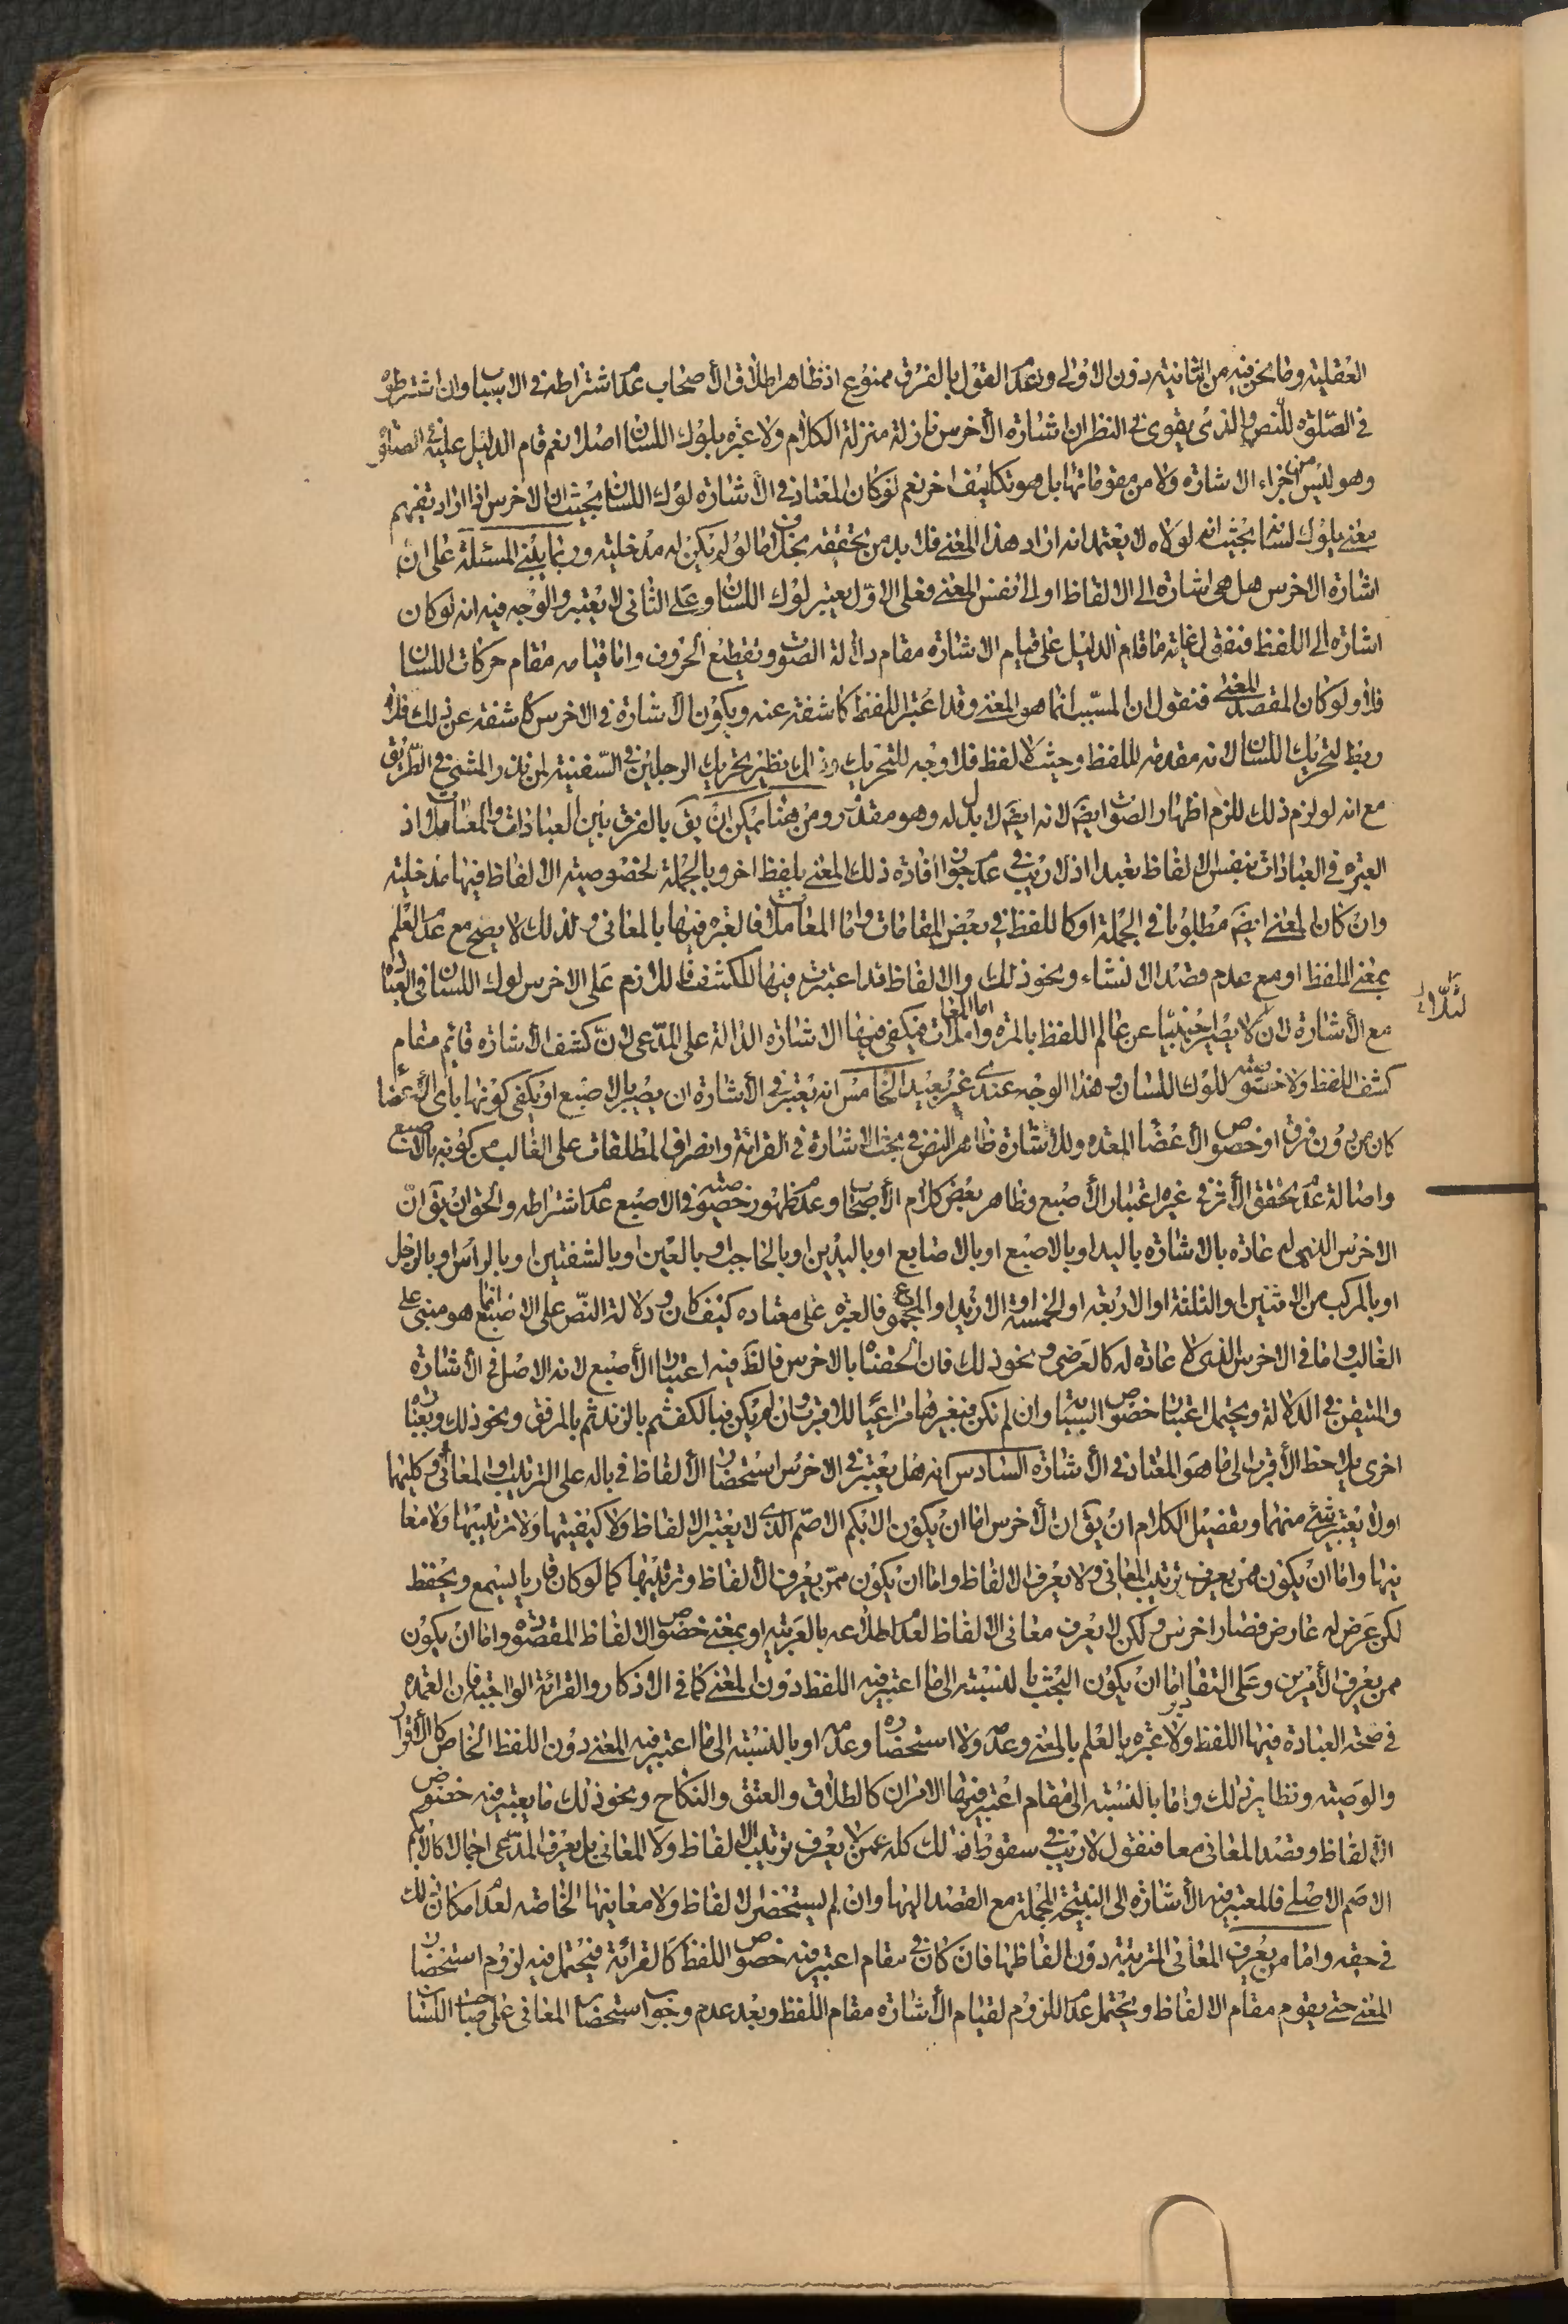 العقلية وما نحن فيه من الثانية دون الاولى وعدم القول بالفرق ممنوع اذ ظاهر اطلاق الأصحاب عدم اشتراطه في الاسباب وان اشترطوه
في الصلوة للنص والذي يقوى في النظر ان اشارة الأخرس نازلة منزلة الكلام ولا عبرة بلوك اللسان اصلا نعم قام الدليل عليه في الصلوة
وهو ليس من اجزاء الاشارة ولا من مقوماتها بل هو تكليف اخر نعم لو كان المعتاد في الأشارة لوك اللسان بحيث ان الاخرس اذا اراد تفهيم
معنى يلوك لسانه بحيث انه لولاه لا يعتمد انه اراد هذا المعنى فلا بد من تحققه بخلاف ما لو لم يكن له مدخلية وربما يبنى المسئلة على ان
اشارة الاخرس هل هي اشارة الى الالفاظ او الى نفس المعنى فعلى الاول يعتبر لوك اللسان وعلى الثاني لا يعتبر والوجه فيه انه لو كان
اشارة الى اللفظ فنقول غاية ما قام الدليل على قيام الاشارة مقام دلالة الصوت وتقطيع الحروف واما قيامه مقام حركات اللسان
فلا ولو كان المقصد المعنى فنقول ان المسبب انما هو المعنى وقد اعتبر اللفظ كاشفة عنه ويكون الأشارة في الاخرس كاشفة عن ذلك فلا
ربط لتحريك اللسان لانه مقدمة لللفظ وحيث لا لفظ فلا وجه للتحريك وذلك نظير تحريك الرجلين في السفينة لمن نذر المشي في الطريق
مع انه لو لزم ذلك للزم اظهار الصوت ايضا لانه ايضا لا بدل له وهو مقدور ومن هنا يمكن ان يق بالفرق بين العبادات والمعاملات اذ
العبرة في العبادات بنفس الالفاظ تعبدا اذ لا ريب في عدم جواز افادة ذلك المعنى بلفظ اخر وبالجملة لخصوصية الالفاظ فيها مدخلية
وان كان المعنى ايضا مطلوبا في الجملة او كاللفظ في بعض المقامات واما المعاملات فالعبرة فيها بالمعاني ولذلك لا يصح مع عدم العلم
بمعنى اللفظ او مع عدم قصد الانشاء ونحو ذلك والالفاظ قد اعتبرت فيها للكشف فاللازم على الاخرس لوك اللسان في العبادات
لئلا
مع الأشارة لان لا يصير اجنبيا عن عالم اللفظ بالمرة واما المعاملات فيكفي فيها الاشارة الدالة على المدعى لان كشف الأشارة قائم مقام
كشف اللفظ ولا خصوصية للوك اللسان وهذا الوجه عندي غير بعيد الخامس انه يعتبر في الأشارة ان يصير بالاصبع او يكفي كونها باي الأعضاء
كان من دون فرق او خصوص الأعضاء المعدة وللاشارة ظاهر النص في بحث الاشارة في القرائة وانصراف المطلقات على الغالب من كونه بالاصبع
واصالة عدم تحقق الأثر في غيره اعتبار الأصبع وظاهر بعض كلام الأصحاب وعدم ظهور خصوصية في الاصبع عدم اشتراطه والحق ان يق ان
الاخرس الذي له عادة بالاشارة باليد او بالاصبع او بالاصابع او باليدين او بالحاجب او بالعين او بالشفتين او بالراس او بالرجل
او بالمركب من الاثنين او الثلثة او الاربعة او الخمسة او الازيد او المجموع فالعبرة على معتاده كيف كان ودلالة النص على الاصبع انما هو مبني على
الغالب واما في الاخرس الذي لا عادة له كالعرضي ونحو ذلك فان الحقناه بالاخرس فالظ فيه اعتبار الأصبع لانه الاصل في الأشارة
والمتيقن في الدلالة ويحتمل اعتبار خصوص السبابة وان لم تكن فبغيرها مراعيا للاقرب وان لم يكن فبالكف ثم بالزند ثم بالمرفق ونحو ذلك وبعبارة
اخرى يلاحظ الأقرب الى ما هو المعتاد في الأشارة السادس انه هل يعتبر في الاخرس استحضار الألفاظ في باله على الترتيب او المعاني او كليهما
اولا يعتبر شئ منهما وتفصيل الكلام ان يق ان الأخرس اما ان يكون الابكم الاصم الذي لا يعتبر الالفاظ ولا كيفيتها ولا ترتيبها ولا معا
نيها واما ان يكون ممن يعرف ترتيب المعاني ولا يعرف الالفاظ واما ان يكون ممن يعرف الألفاظ وترتيبها كما لو كان قاريا يسمع ويحفظ
لكن عرض له عارض فصار اخرس ولكن لا يعرف معاني الالفاظ لعدم اطلاعه بالعربية او بمعنى خصوص الالفاظ المقصودة واما ان يكون
ممن يعرف الأمرين وعلى التقادير اما ان يكون البحث بالنسبة الى ما اعتبر فيه اللفظ دون المعنى كما في الاذكار والقرائة الواجبة فان العمدة
في صحة العبادة فيها اللفظ ولا عبرة بالعلم بالمعنى وعدمه ولا استحضاره وعدمه او بالنسبة الى ما اعتبر فيه المعنى دون اللفظ الخاص كالأقرار
والوصية ونظاير ذلك واما بالنسبة الى مقام اعتبر فيها الامران كالطلاق والعتق والنكاح ونحو ذلك ما يعتبر فيه خصوص
الألفاظ وقصد المعاني معا فنقول لا ريب في سقوط ذلك كله عمن لا يعرف ترتيب الالفاظ ولا المعاني بل يعرف المدعى اجمالا كالابكم
الاصم الاصلي فالمعتبر فيه الأشارة الى النتيجة المجملة مع القصد اليها وان لم يستحضر الالفاظ ولا معانيها الخاصة لعدم امكان ذلك
في حقه واما من يعرف المعاني المترتبة دون الفاظها فان كان في مقام اعتبر فيه خصوص اللفظ كالقرائة فيحتمل فيه لزوم استحضار
المعنى حتى يقوم مقام الالفاظ ويحتمل عدم اللزوم لقيام الأشارة مقام اللفظ وبعد عدم وجوب استحضار المعاني على صاحب اللسان